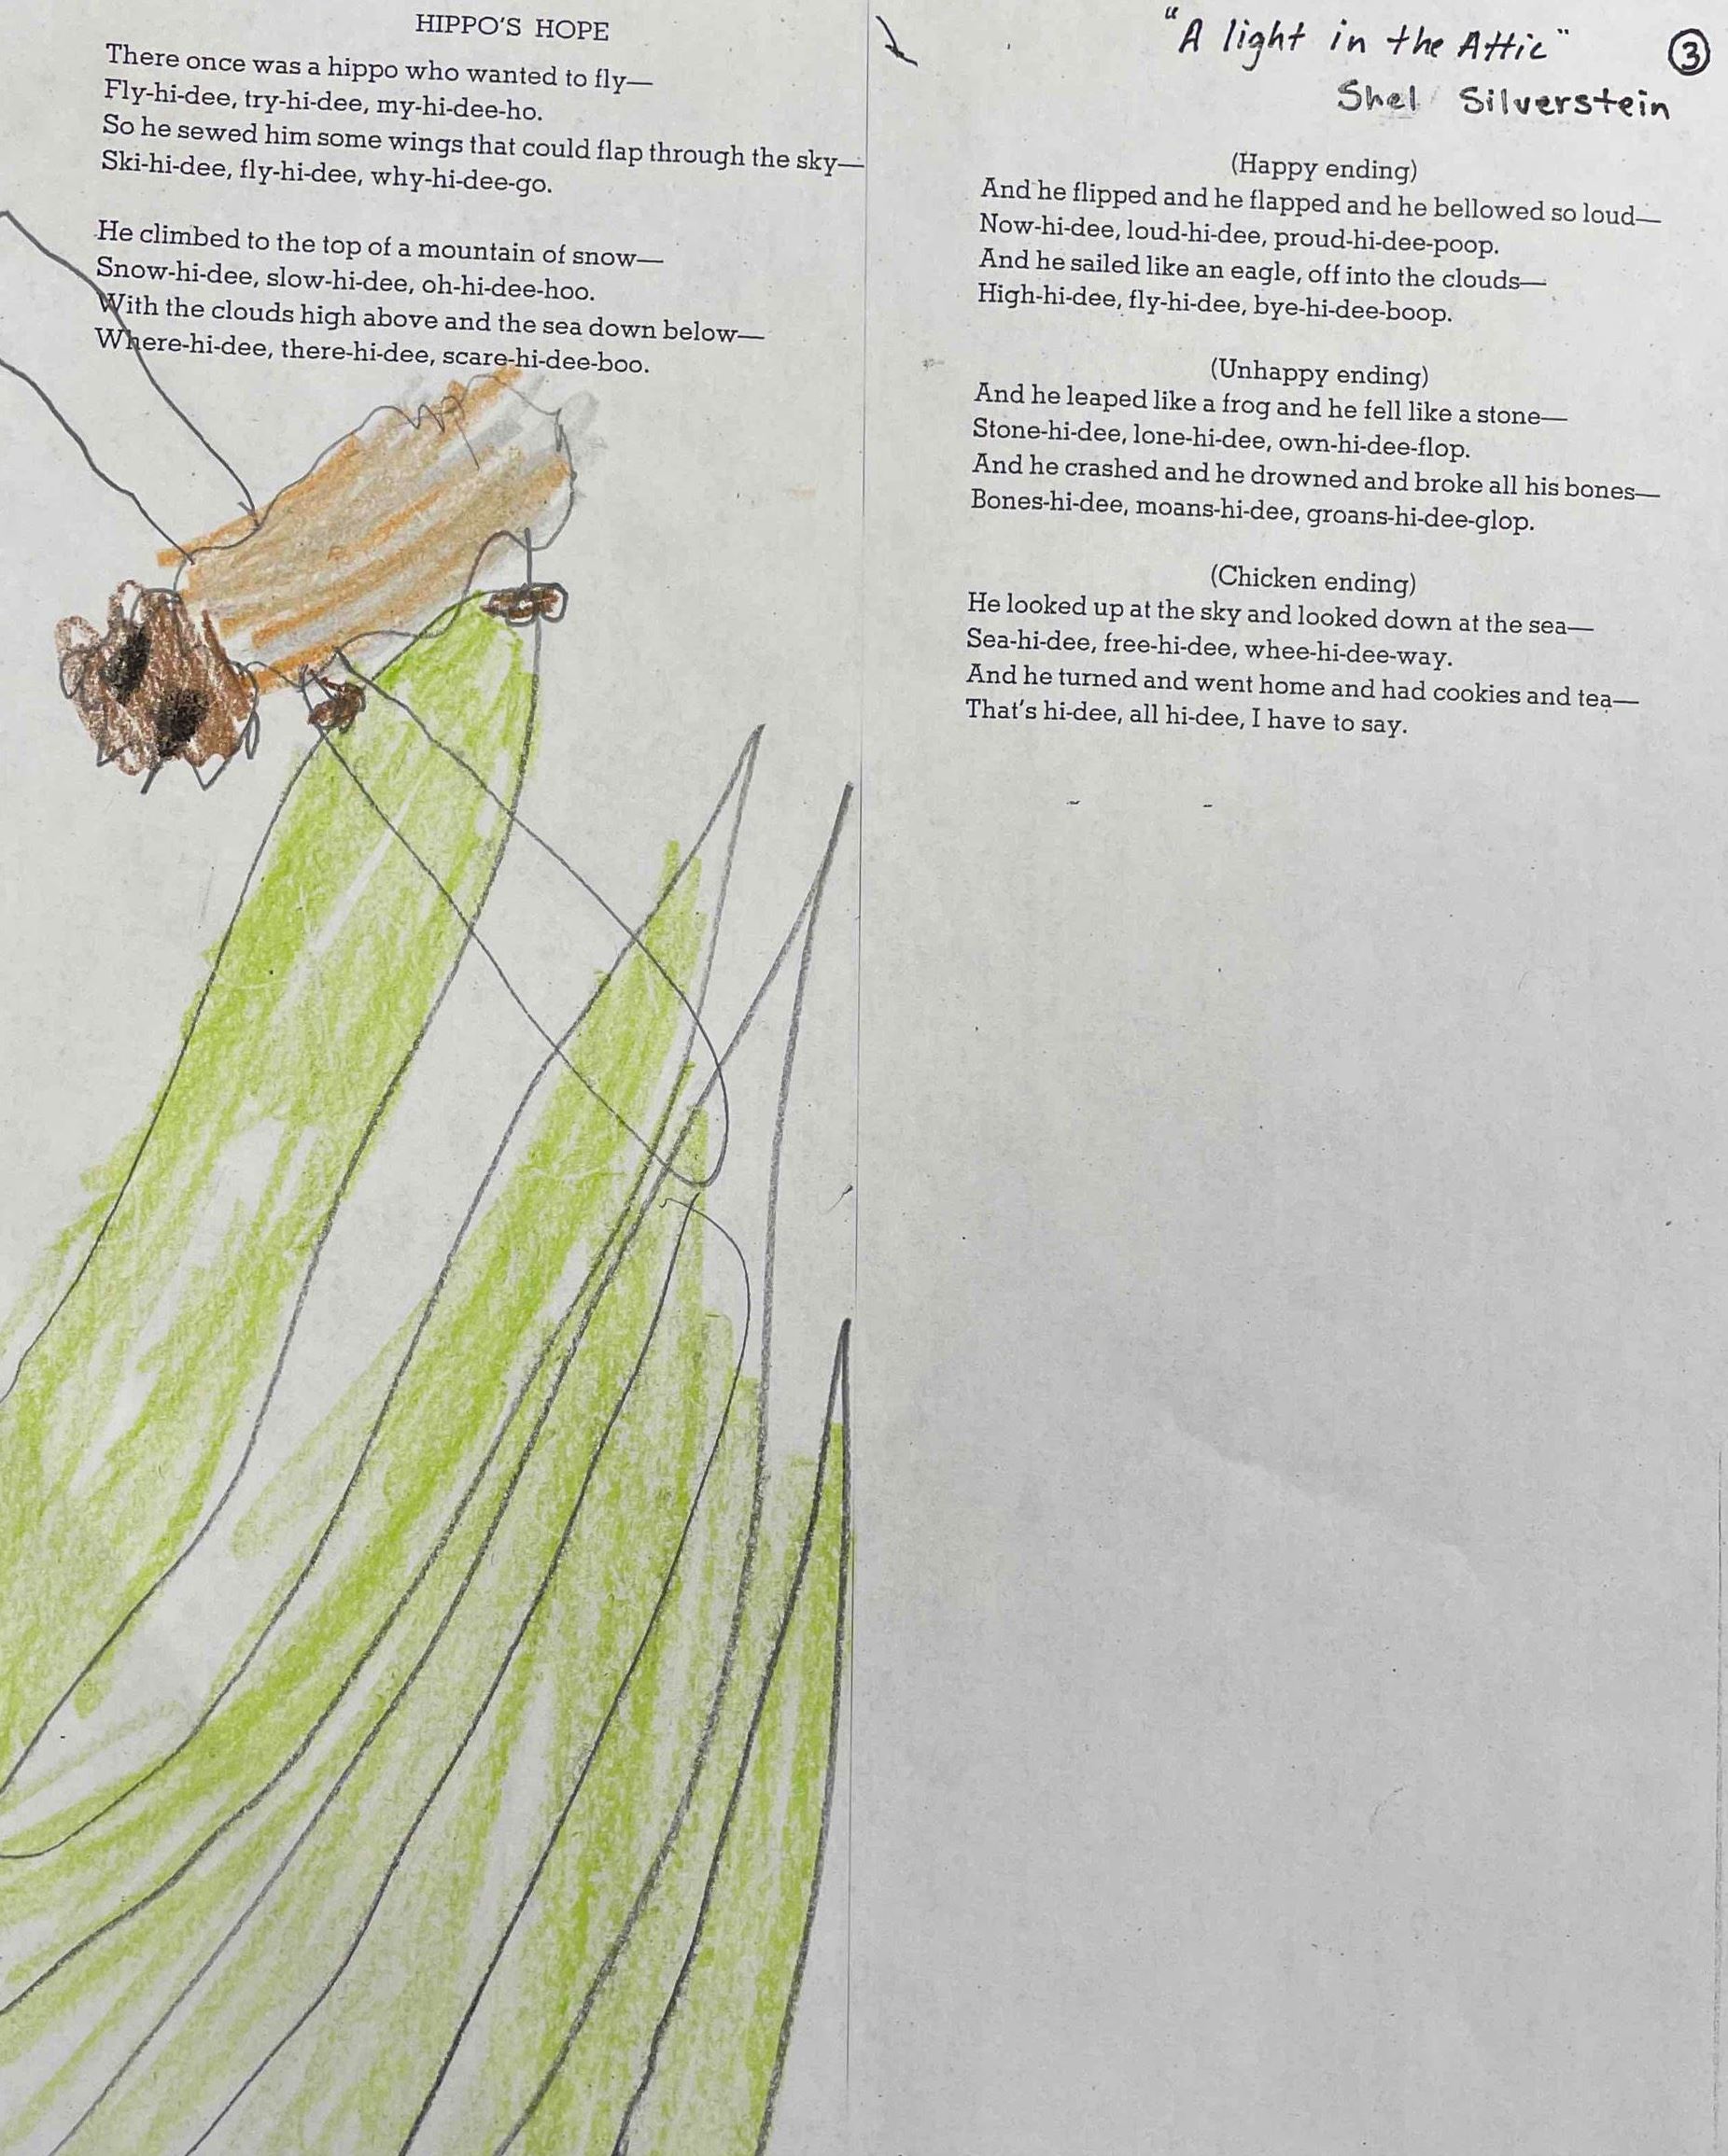 HIPPO'S HOPE
There once was a hippo who wanted to fly—
Fly-hi-dee, try-hi-dee, my-hi-dee-ho.
So he sewed him some wings that could flap through the sky—
Ski-hi-dee, fly-hi-dee, why-hi-dee-go.
He climbed to the top of a mountain of snow—
Snow-hi-dee, slow-hi-dee, oh-hi-dee-hoo.
With the clouds high above and the sea down below—
Where-hi-dee, there-hi-dee, scare-hi-dee-boo.
"A light in the Attic"
3
Shel Silverstein
(Happy ending)
And he flipped and he flapped and he bellowed so loud—
Now-hi-dee, loud-hi-dee, proud-hi-dee-poop.
And he sailed like an eagle, off into the clouds—
High-hi-dee, fly-hi-dee, bye-hi-dee-boop.
(Unhappy ending)
And he leaped like a frog and he fell like a stone—
Stone-hi-dee, lone-hi-dee, own-hi-dee-flop.
And he crashed and he drowned and broke all his bones—
Bones-hi-dee, moans-hi-dee, groans-hi-dee-glop.
(Chicken ending)
He looked up at the sky and looked down at the sea—
Sea-hi-dee, free-hi-dee, whee-hi-dee-way.
And he turned and went home and had cookies and tea—
That's hi-dee, all hi-dee, I have to say.